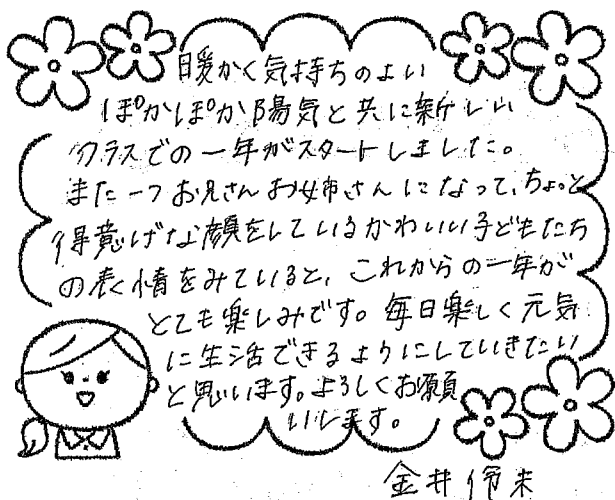 暖かく気持ちのよい
ぽかぽか陽気と共に新しい
クラスでの一年がスタートしました。
また一つお兄さんお姉さんになって、ちょっと
得意げな顔をしているかわいい子どもたち
の表情をみていると、これからの一年が
とても楽しみです。毎日楽しく元気
に生活できるようにしていきたい
と思います。よろしくお願
いします。
金井伶来